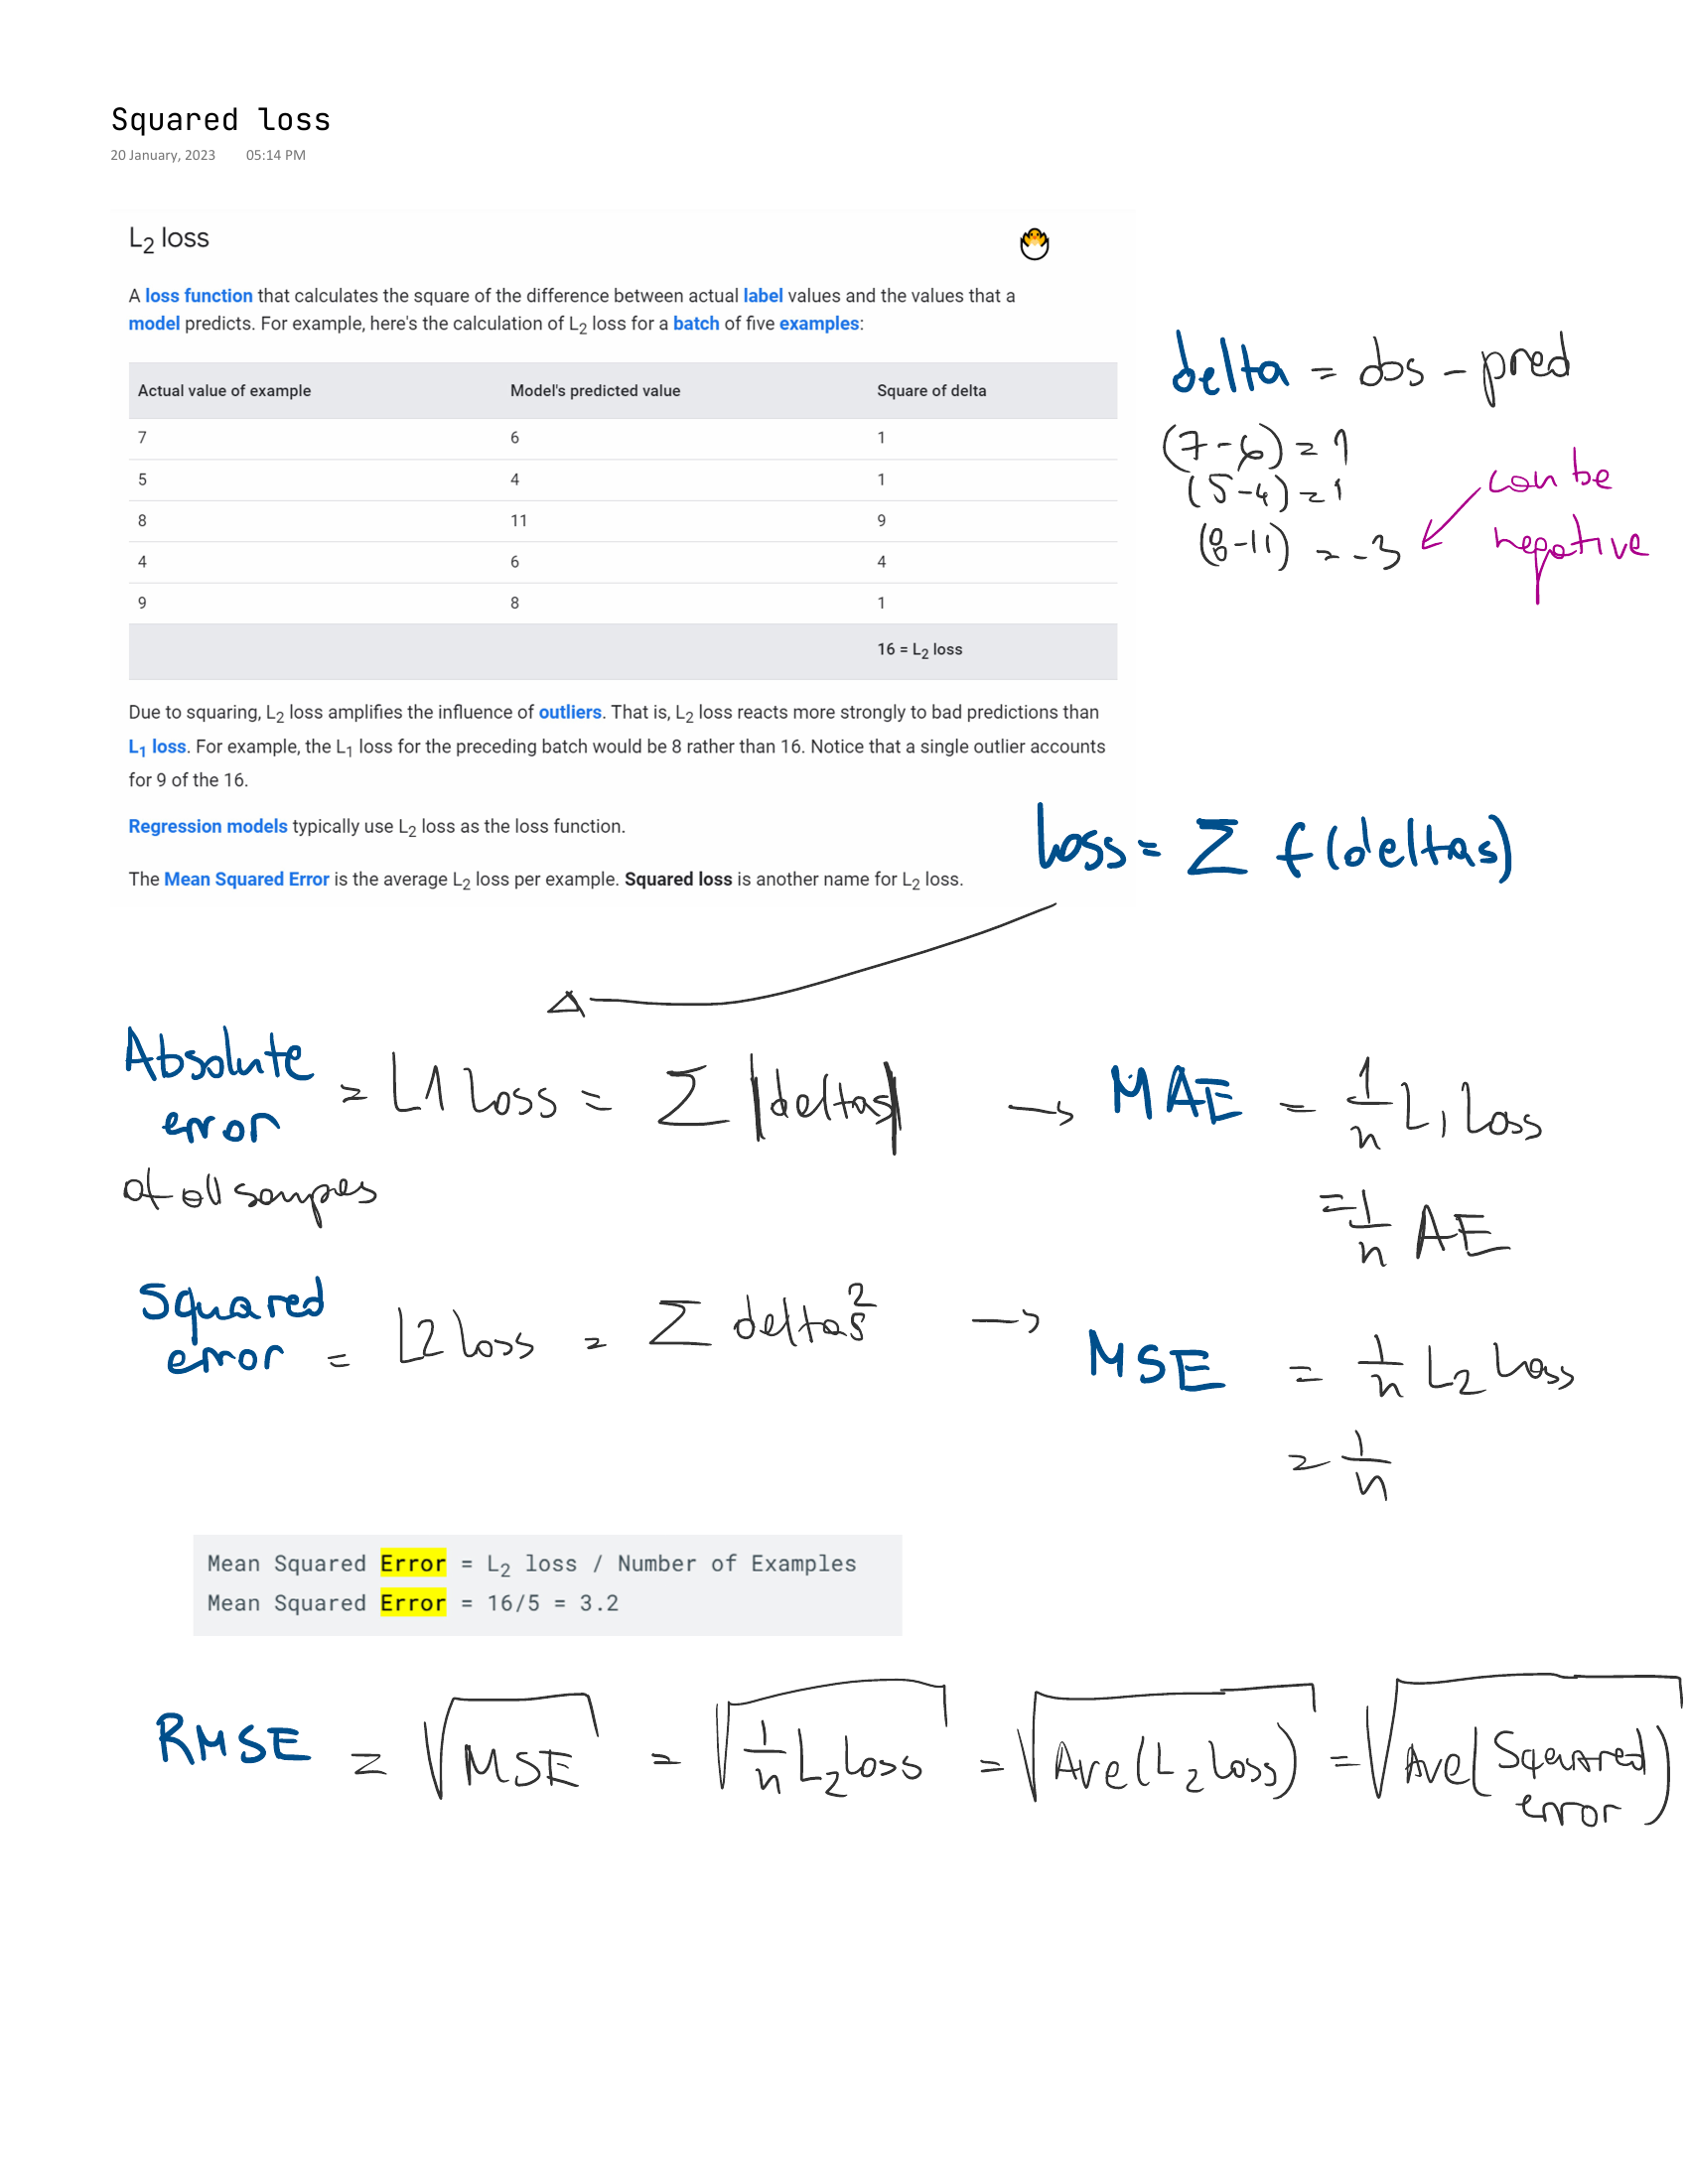 Squared loss
20 January, 2023 05:14 PM
L2 loss
A loss function that calculates the square of the difference between actual label values and the values that a
model predicts. For example, here's the calculation of L2 loss for a batch of five examples:
Actual value of example Model's predicted value Square of delta
7 6 1
5 4 1
8 11 9
4 6 4
9 8 1
16 = L2 loss
delta = obs - pred
(7-6) = 1
(5-4) = 1
(8-11) = -3
can be
negative
Due to squaring, L2 loss amplifies the influence of outliers. That is, L2 loss reacts more strongly to bad predictions than
L1 loss. For example, the L1 loss for the preceding batch would be 8 rather than 16. Notice that a single outlier accounts
for 9 of the 16.
Regression models typically use L2 loss as the loss function.
The Mean Squared Error is the average L2 loss per example. Squared loss is another name for L2 loss.
Loss = Σ f(deltas)
Absolute
error
of all sampes
= L1 Loss = Σ |deltas| → MAE = 1/n L1 Loss
= 1/n AE
Squared
error = L2 loss = Σ deltas² → MSE = 1/n L2 Loss
= 1/n
Mean Squared Error = L2 loss / Number of Examples
Mean Squared Error = 16/5 = 3.2
RMSE = √MSE = √(1/n L2 loss) = √Ave(L2 loss) = √Ave(Squared error)